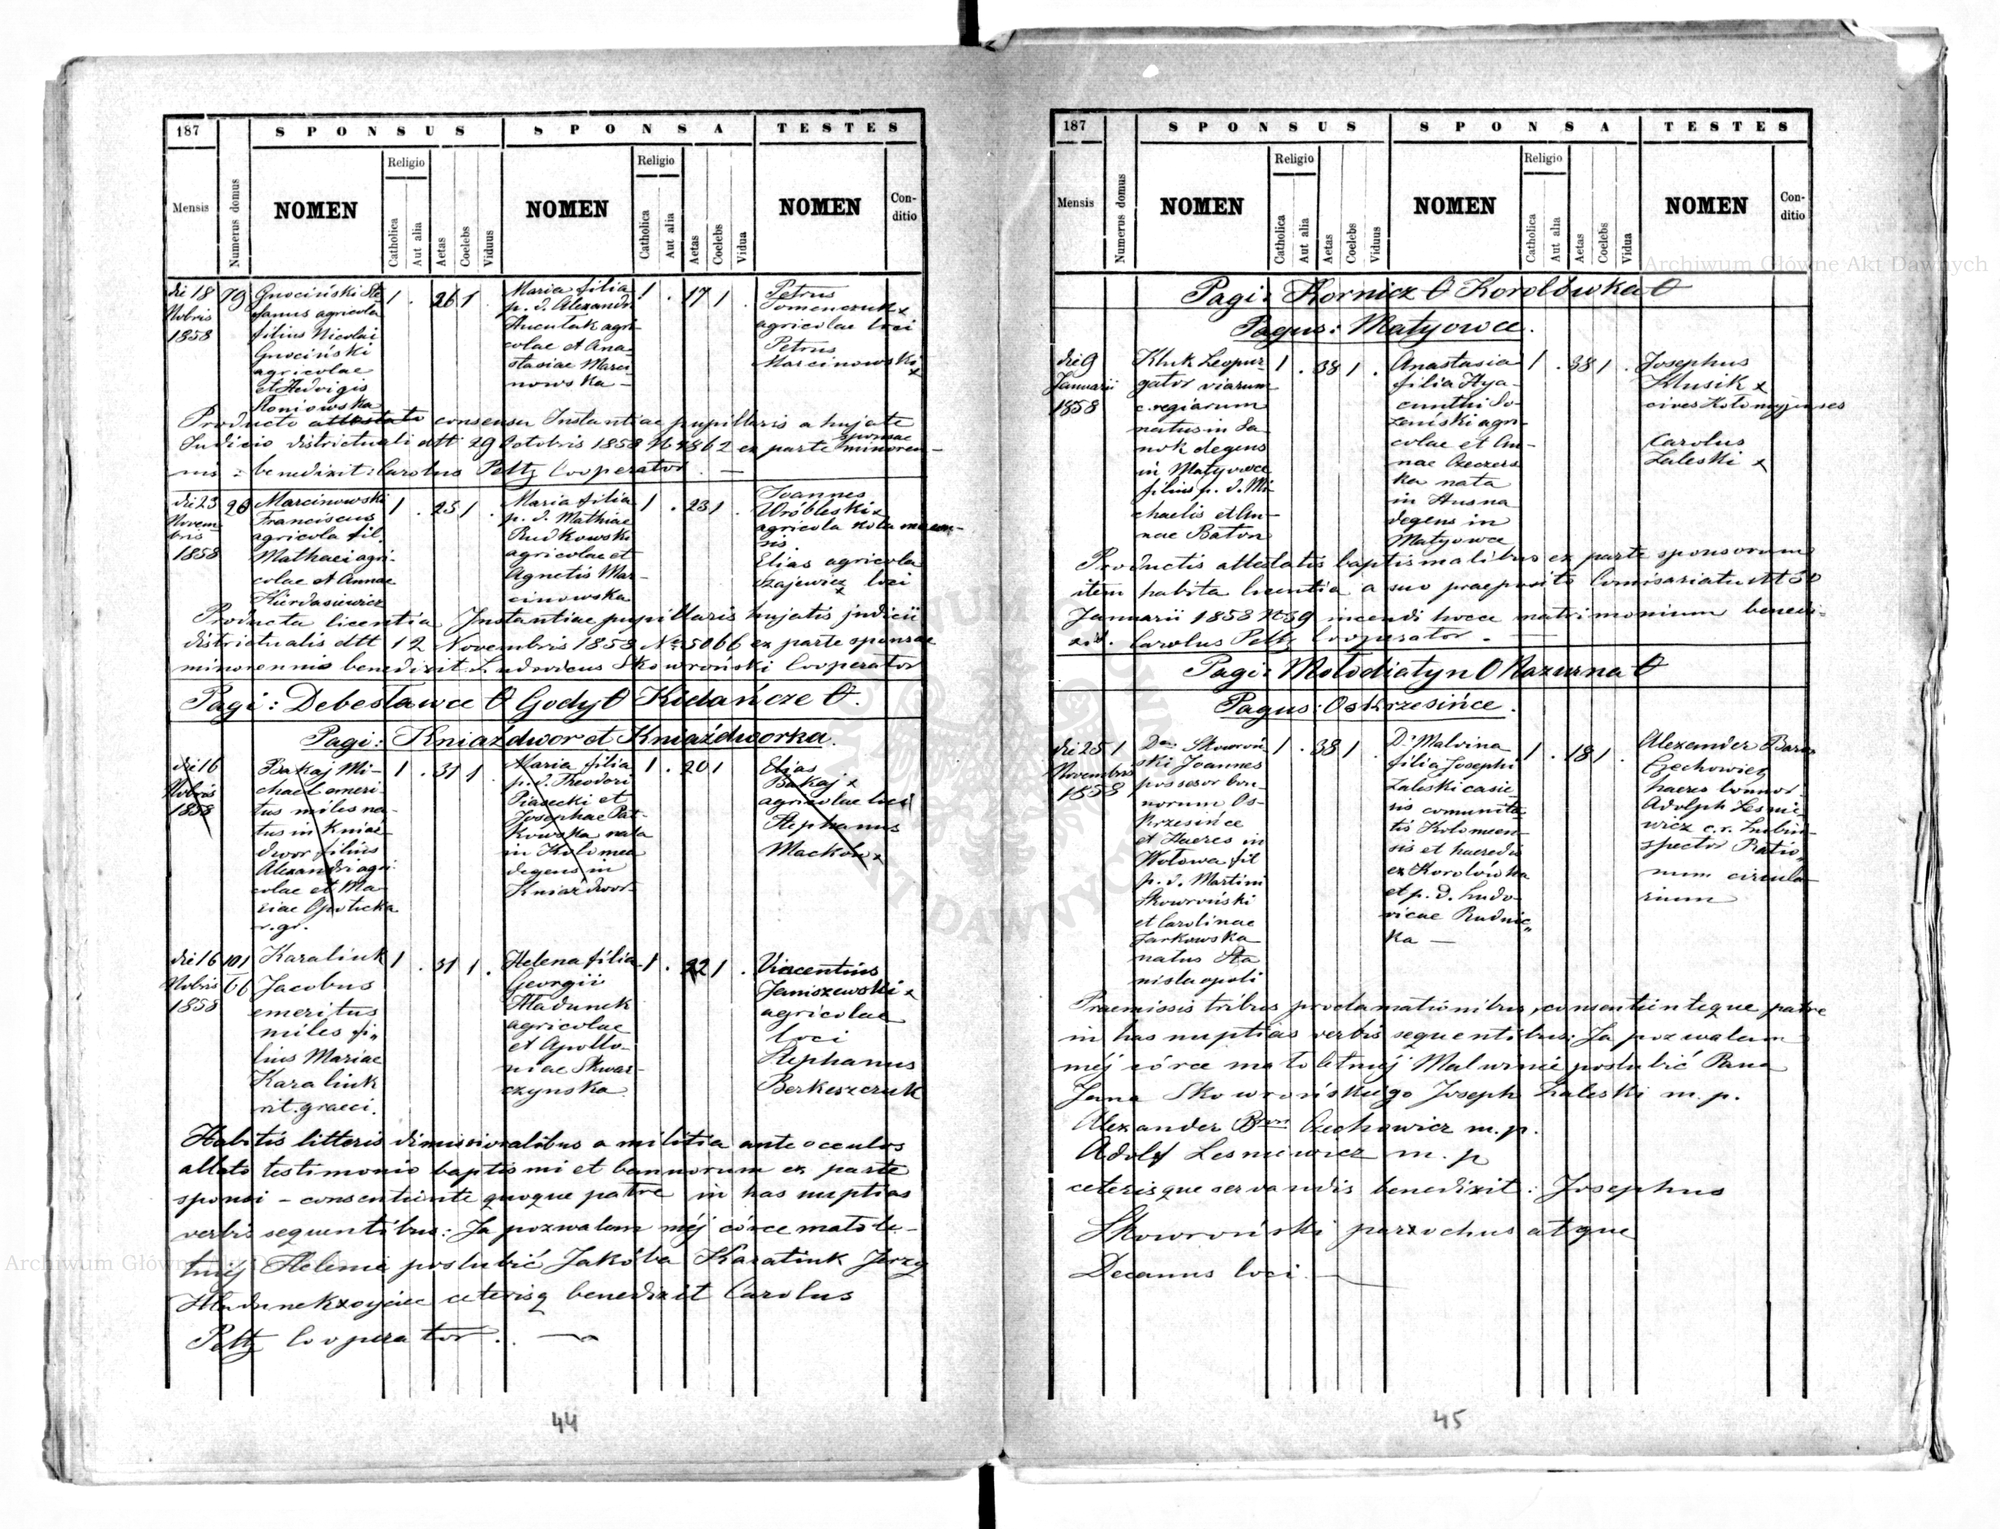 187
SPONSUS
SPONSA
TESTES
Mensis
Numerus domus
NOMEN
Religio
Catholica
Aut alia
Aetas
Coelebs
Viduus
NOMEN
Religio
Catholica
Aut alia
Aetas
Coelebs
Vidua
NOMEN
Conditio
die 18
Nobris
1858
79
Gnociński Ste
fanus agricola
filius Nicolai
Gnociński
agricolae
et Hedvigis
Koniowska
1 . 26 1 .
Maria filia
p. d. Alexandri
Huculak agri-
colae et Ana-
stasiae Marci-
nowska -
1 . 17 1 .
Petrus
Tomenczuk x
agricolae loci
Petrus
Marcinowski
x
Producto attestato consensu Instantiae pupillaris a hujate
Judicio districtuali dtt 29 Octobris 1858 N 4862 ex parte sponsae minoren-
nis - benedixit: Carolus Peltz Cooperator. -
die 23
Novem-
bris
1858
20
Marcinowski
Franciscus
agricola fil.
Mathaei agri-
colae et Annae
Kurdasiewicz
1 . 25 1 .
Maria filia
p. d. Mathiae
Rudkowski
agricolae et
Agnetis Mar-
cinowska
1 . 23 1 .
Joannes
Wróbleski x
agricola kolomeen-
sis
Elias agricola
Szajewicz x loci
Producta licentia Instantiae pupillaris hujatis judicii
districtualis dtt 12 Novembris 1858 No 5066 ex parte sponsae
minorennis benedixit Ludovicus Skowroński Cooperator
Pagi: Debesławce O Gody O Kidańcze O.
Pagi: Kniaźdwor et Kniaźdworka.
die 16
Nobris
1858
Bakaj Mi-
chael emeri-
tus miles na-
tus in Kniaź-
dwor filius
Alexandri agri-
colae et Ma-
riae Opoticka
r. gr.
1 . 31 1
Maria filia
p. d. Theodori
Piasecki et
Josephae Pat-
kowska nata
in Kolomea
degens in
Kniaźdwor
1 . 20 1
Elias
Bakaj x
agricolae loci
Stephanus
Macków x
die 16
Nobris
1858
101
66
Karaliuk
Jacobus
emeritus
miles fi„
lius Mariae
Karaliuk
rit. graeci.
1 . 31 1 .
Helena filia
Georgii
Hladunek
agricolae
et Apollo-
niae Skwar-
czynska
1 . 22 1 .
Vincentius
Janiszewski x
agricolae
loci
Stephanus
Berkeszczuk
Habitis litteris dimissionalibus a militia ante oculos
allato testimonio baptismi et bannorum ex parte
sponsi - consentiente quoque patre in has nuptias
verbis sequentibus: Ja pozwalam méj córce małole-
tnéj Helenie poslubić Jakóba Karaliuk Jerzy
Hladunek x ojciec ceterisq benedixit Carolus
Peltz Cooperator. -
44
187
SPONSUS
SPONSA
TESTES
Mensis
Numerus domus
NOMEN
Religio
Catholica
Aut alia
Aetas
Coelebs
Viduus
NOMEN
Religio
Catholica
Aut alia
Aetas
Coelebs
Vidua
NOMEN
Conditio
Pagi: Kornicz O Korolówka O
Pagus: Matyowce.
die 9
Januarii
1858
Kluk Leopur
gator viarum
c. regiarum
natus in Sa
nok degens
in Matyowce
filius p. d. Mi
chaelis et An-
nae Baton
1 . 38 1 .
Anastasia
filia Hya-
cinthi So-
zański agri-
colae et An-
nae Czeczers
ka nata
in Husna
degens in
Matyowce
1 . 38 1 .
Josephus
Klusik x
cives Kolomyjenses
Carolus
Zaleski x
Productis attestatis baptismalibus ex parte sponsorum
item habita licentia a suo praeposito Comisariatu dtt 30
Januarii 1858 N 59 ineundi hocce matrimonium benedi-
xit. Carolus Peltz Cooperator. -
Pagi: Mołodiatyn O Kazurna O
Pagus: Oskrzesińce.
die 25
Novembris
1858
1
Dns Skowroń
ski Joannes
possesor bon-
norum Os-
krzesińce
et Haeres in
Wołowa fil
p. d. Martini
Skowroński
et Carolinae
Jarkowska
natus Sta
nislaopoli
1 . 38 1 .
Da Malvina
filia Josephi
Zaleski casie
ris comunita-
tis Kolomeen-
sis et haeredis
ex Korolówka
et p. d. Ludo-
vicae Rudnic„
ka -
1 . 18 1 .
Alexander Baro
Czechowicz
haeres bonnor
Adolph Lesnie-
wicz c. r. Subin-
spector Ratio„
num circula-
rium
Praemissis tribus proclamationibus, consentienteque patre
in has nuptias verbis sequentibus: Ja pozwalam
méj córce małoletnéj Malwinie poslubić Pana
Jana Skowrońskiego Joseph Zaleski m. p.
Alexander Bron Czechowicz m. p.
Adolf Lesniewicz m. p
ceterisque servandis benedixit: Josephus
Skowroński parochus atque
Decanus loci. -
45
Archiwum Główne Akt Dawnych
Archiwum Główne Akt Dawnych